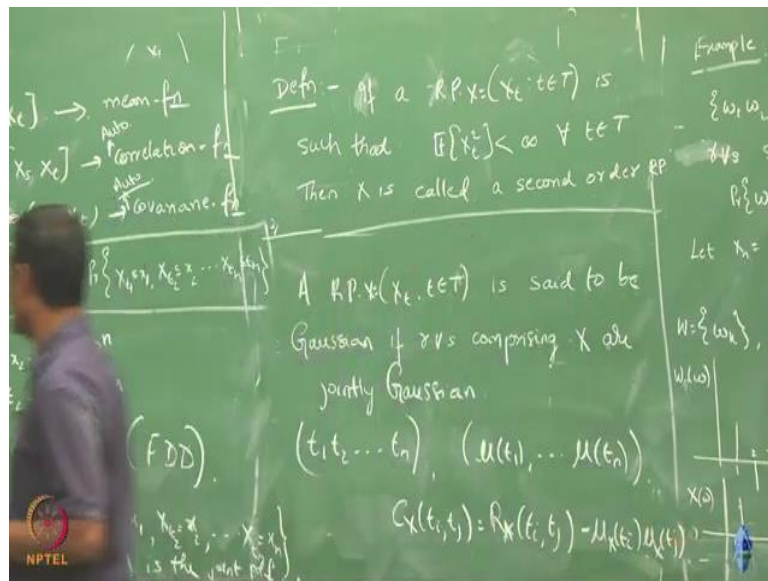 x₁
x_t] → mean fn
Auto
x_s, x_t] → Correlation fn
Auto
t) → Covariance fn
Pr{X_{t_1} ≤ x_1, X_{t_2} ≤ x_2 ... X_{t_n} ≤ x_n}
n
(FDD).
x_1, X_{t_2} = x_2, ... X_{t_n} = x_n}
is the joint pdf
Defn:- If a R.P. X=(X_t : t∈T) is
such that E[X_t^2] < ∞ ∀ t∈T
Then X is called a second order RP
A R.P. X=(X_t, t∈T) is said to be
Gaussian if rvs comprising X are
jointly Gaussian
(t_1 t_2 ... t_n), (μ(t_1), ... μ(t_n))
C_X(t_i, t_j) = R_X(t_i, t_j) - μ_X(t_i) μ_X(t_j)
Example
{ω_1 ω_2
rvs
Pr{ω
Let X_n =
W = {ω_k},
W(ω)
X(ω)
NPTEL